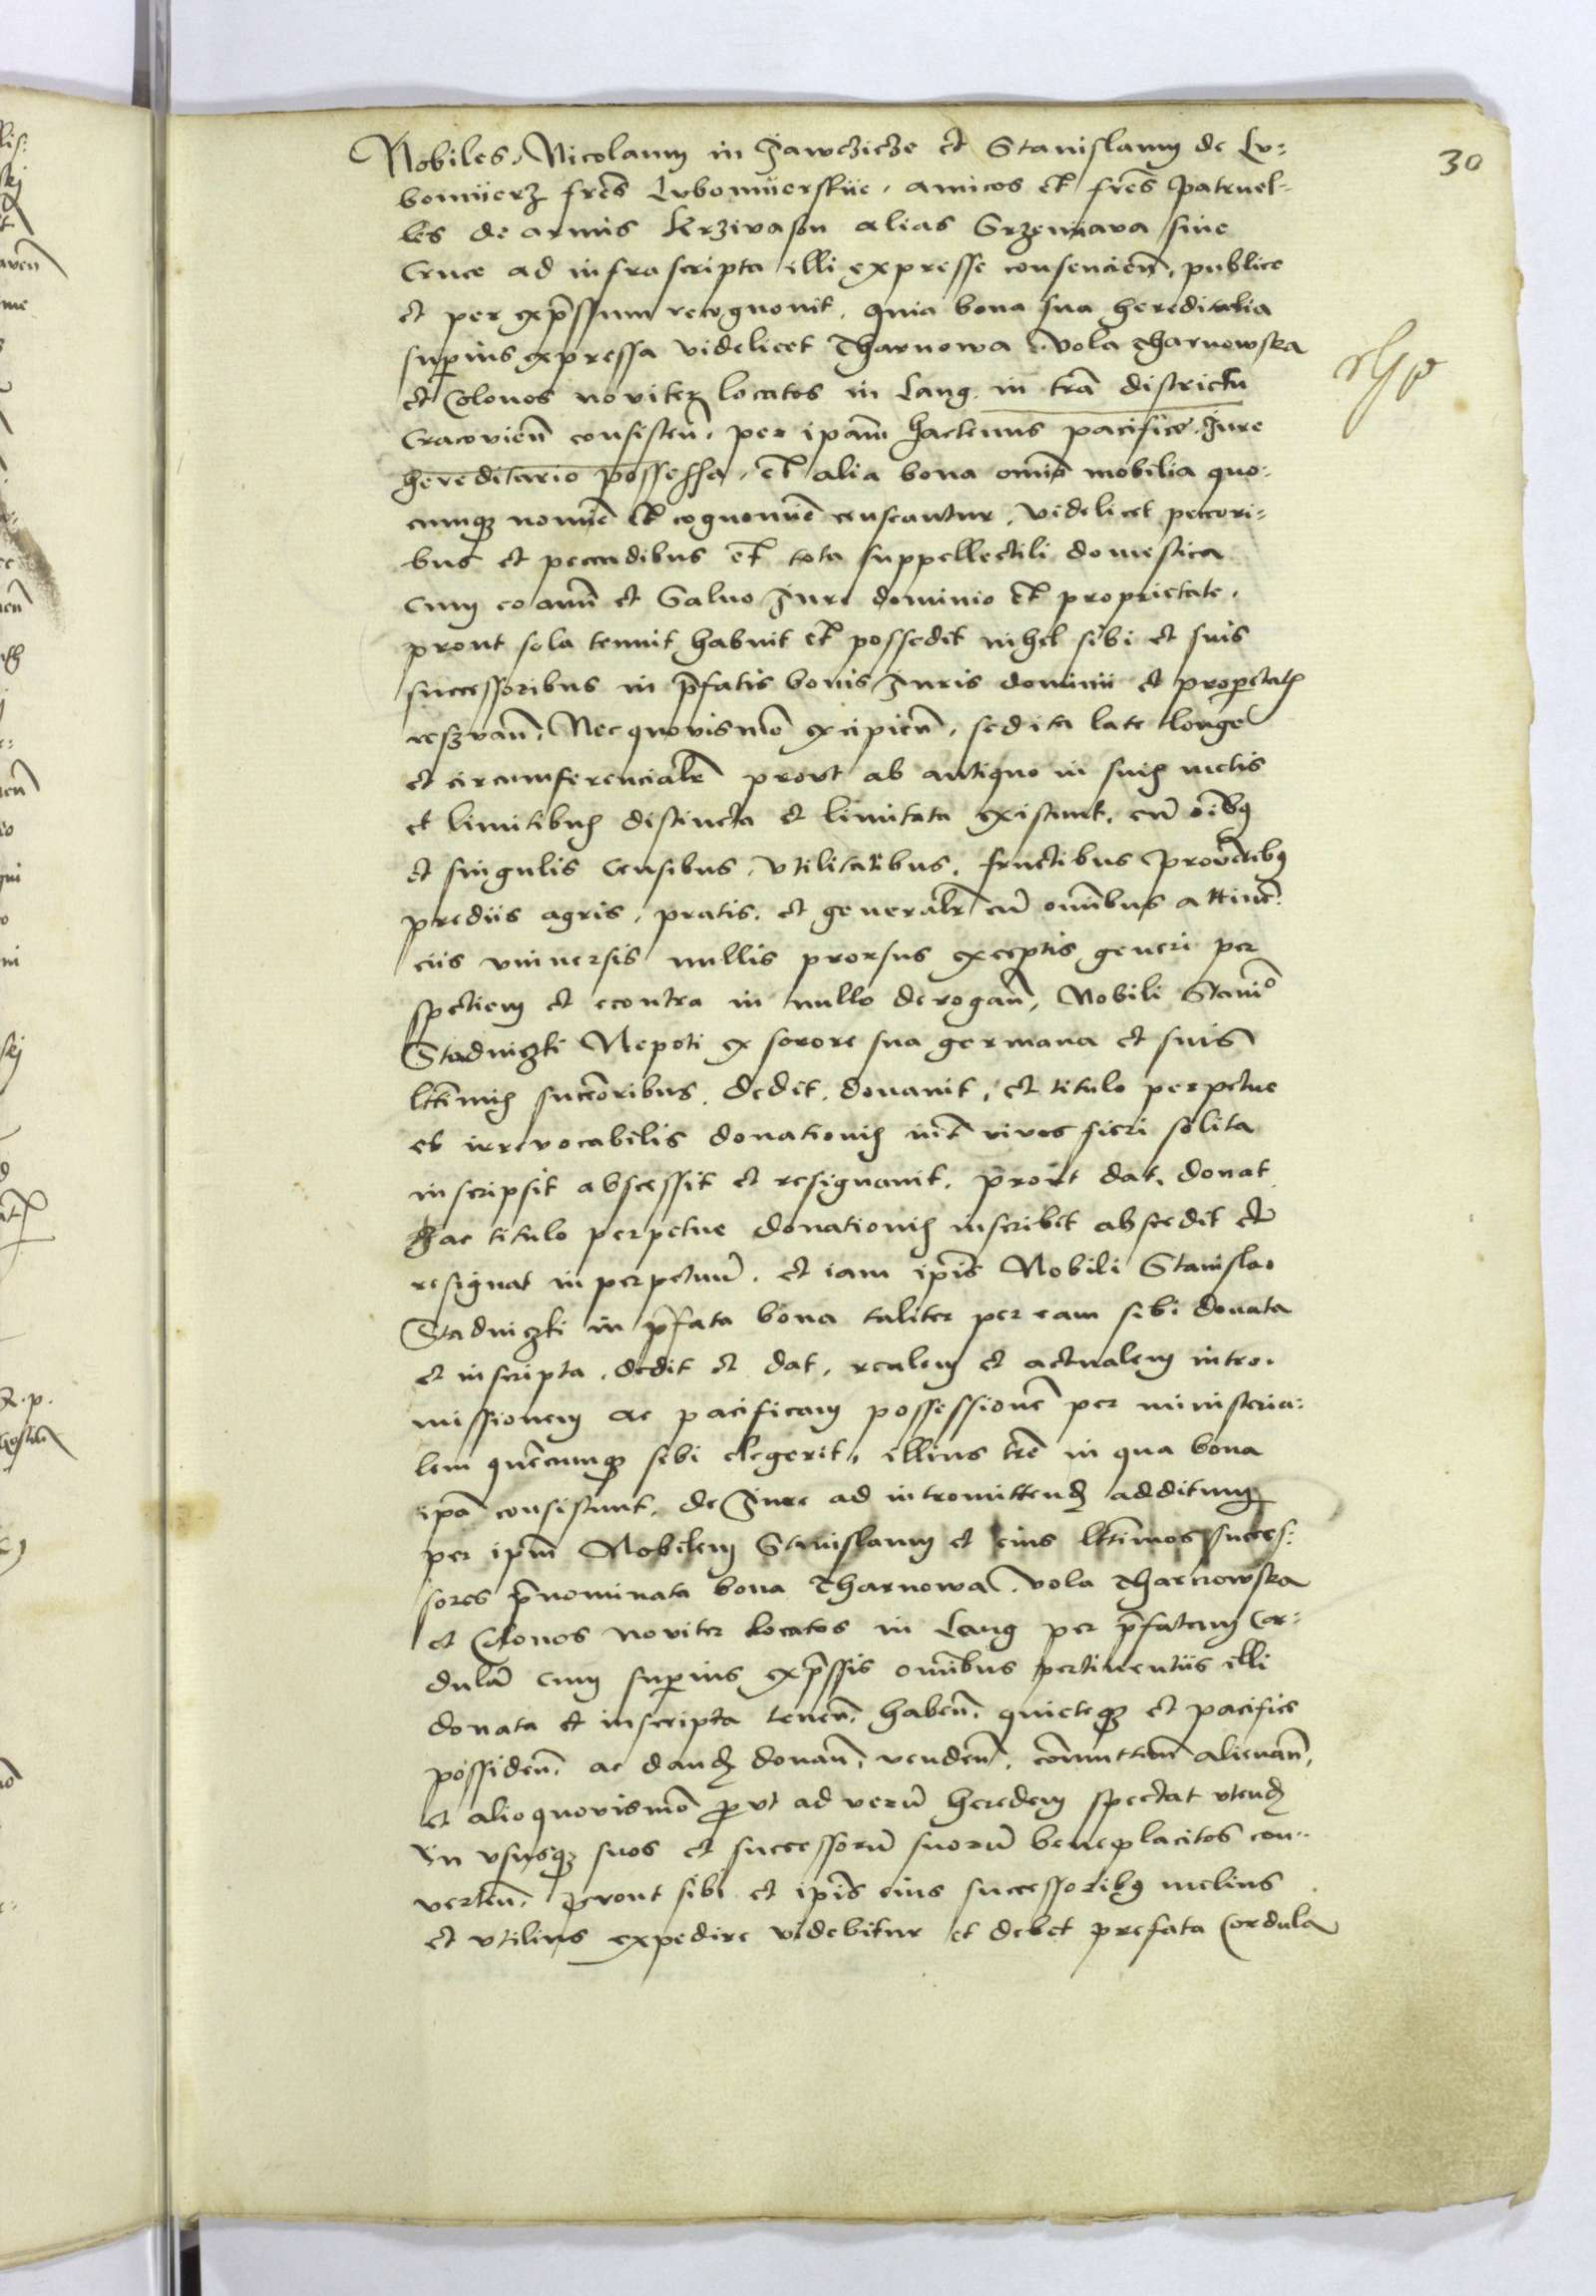 30
Nobiles. Nicolaum in Jawczicze et Stanislaum de Lu-
bomierz fres Lubomierskie. amicos et fres patruel-
les de armis Krzivasn alias Srzeniava sine
Cruce ad infrascripta illi expresse conscencien, publice
et per expssum recognovit. quia bona sua hereditalia
superius expressa videlicet Tharnowa. Vola Tharnowska
et Colonos noviter locatos in Lang. in tra districtu
Cracovien consisten. per ipam hactenus pacifice. Jure
hereditario possessa. et alia bona omia mobilia quo-
cumqz nomie et cognomie censeantur. videlicet peccori-
bus et peccudibus et tota suppellectili domestica
Cum eo anim et Salvo Jure dominio et proprietate.
prout sola tenuit habuit et possedit nihil sibi et suis
successoribus in pfatis bonis Juris dominii et proprietatis
reszvan. Nec quovismo excipien. sed ita late longe
et circumferencialr prout ab antiquo in suis metis
et limitibus distincta et limitata existunt. cu oibus
et singulis Censibus. Utilitatibus. fructibus proventibus
prediis agris. pratis. et generalr cu omibus attinen-
ciis universis nullis prorsus exceptis generi per
speciem et econtra in nullo derogan. Nobili Stanio
Stadniczki Nepoti ex sorore sua germana et suis
lttimis succoribus. dedit. donavit. et titulo perpetue
et irrevocabilis donationis int vivos fieri solita
inscripsit abscessit et resignavit. prout dat. donat
hac titulo perpetue donationis inscribit abscedit et
resignat in perpetuu. et iam ipis Nobili Stanislao
Stadniczki in pfata bona taliter per eam sibi donata
et inscripta. dedit et dat. realem et actualem intro-
missionem ac pacificam possessione per ministeria-
lem quecumqz sibi elegerit. illius tre in qua bona
ipa consistunt. de Jure ad intromittend additum
per ipm Nobilem Stanislaum et eius lttimos succes-
sores pnominata bona Tharnowa. Vola Tharnowska
et Colonos noviter locatos in Lang per pfatam Cor-
dula cum superius expssis omibus pertinentiis illi
donata et inscripta tenen. haben. quieteqz et pacifice
possiden. ac dand donan. venden. comutten alienan.
et alio quovismo put ad veru heredem spectat utend
in ususqz suos et successoru suoru beneplacitos con-
verten. prout sibi et ipis eius successoribus melius
et utilius expedire videbitur et debet prefata Cordula